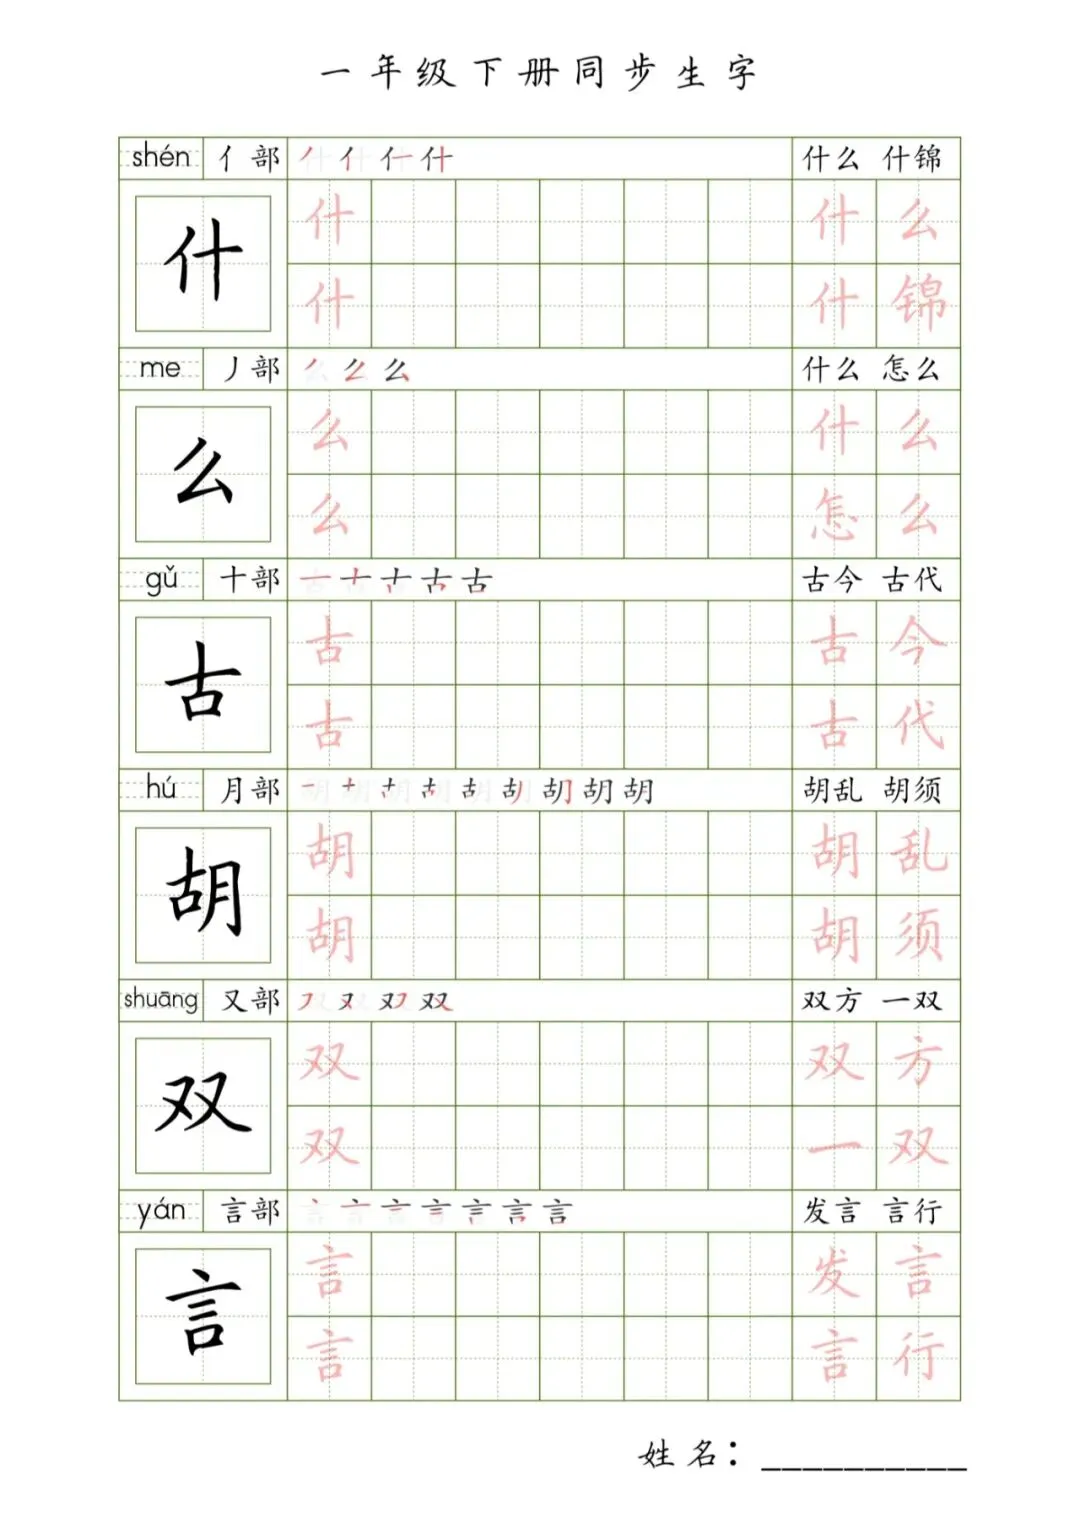 一年级下册同步生字
shén 亻部 丿 亻 仁 什 什么 什锦
什 什 什 么
什 什 锦
me 丿部 丿 厶 么 什么 怎么
么 么 什 么
么 怎 么
gǔ 十部 一 十 古 古今 古代
古 古 古 今
古 古 代
hú 月部 一 十 古 胡 胡 胡乱 胡须
胡 胡 胡 乱
胡 胡 须
shuāng 又部 フ 又 双 双方 一双
双 双 双 方
双 一 双
yán 言部 丶 亠 言 发言 言行
言 言 发 言
言 言 行
姓名：__________